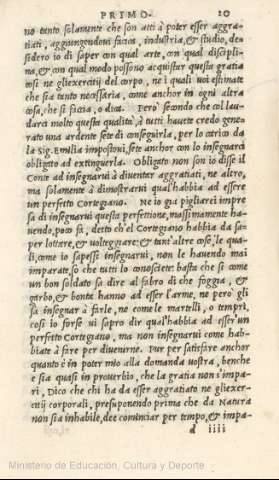 PRIMO. 10
no tanto solamente che son atti à poter esser aggra-
tiati, aggiungendoui fatica, industria, & studio, de-
sidero io di saper con qual arte, con qual discipli-
na, & con qual modo possono acquistar questa gratia
cosi ne gliexercitij del corpo, ne i quali voi estimate
che sia tanto necessaria, come anchor in ogni altra
cosa, che si faccia, o dica. Però secondo che col lau-
darci molto questa qualità, à tutti hauete credo gene-
rato una ardente sete di conseguirla, per lo carico da
la Sig. Emilia impostoui, sete anchor con lo insegnarci
obligato ad extinguerla. Obligato non son io disse il
Conte ad insegnarui à diuentar aggratiati, ne altro,
ma solamente à dimostrarui qual'habbia ad essere
un perfetto Cortegiano. Ne io gia pigliarei impre
sa di insegnarui questa perfettione, massimamente ha-
uendo, poco fa, detto ch'el Cortegiano habbia da sa-
per lottare, & volteggiare, & tant'altre cose, le qua-
li, come io sapessi insegnarui, non le hauendo mai
imparate, so che tutti lo conoscete: basta che si come
un bon soldato sa dire al fabro di che foggia, &
garbo, & bontà hanno ad esser l'arme, ne però gli
sa insegnar à farle, ne come le martelli, o tempri,
cosi io forse ui saprò dir qual'habbia ad esser un
perfetto Cortegiano, ma non insegnarui come hab-
biate à fare per diuenirne. Pur per satisfar anchor
quanto è in poter mio alla domanda uostra, benche
e sia quasi in prouerbio, che la gratia non s'impa-
ri, Dico che chi ha da esser aggratiato ne gliexer-
citij corporali, presuponendo prima che da Natura
non sia inhabile, dee cominciar per tempo, & impa-
d iiii
Ministerio de Educación, Cultura y Deporte